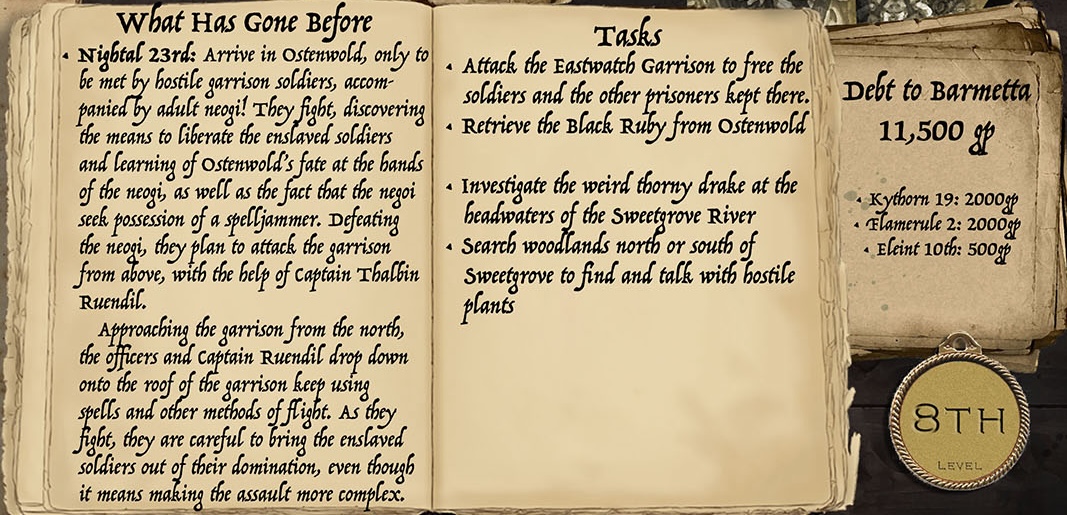 What Has Gone Before
Nightal 23rd: Arrive in Ostenwold, only to
be met by hostile garrison soldiers, accom-
panied by adult neogi! They fight, discovering
the means to liberate the enslaved soldiers
and learning of Ostenwold's fate at the hands
of the neogi, as well as the fact that the negoi
seek possession of a spelljammer. Defeating
the neogi, they plan to attack the garrison
from above, with the help of Captain Thalbin
Ruendil.
Approaching the garrison from the north,
the officers and Captain Ruendil drop down
onto the roof of the garrison keep using
spells and other methods of flight. As they
fight, they are careful to bring the enslaved
soldiers out of their domination, even though
it means making the assault more complex.
Tasks
Attack the Eastwatch Garrison to free the
soldiers and the other prisoners kept there.
Retrieve the Black Ruby from Ostenwold
Investigate the weird thorny drake at the
headwaters of the Sweetgrove River
Search woodlands north or south of
Sweetgrove to find and talk with hostile
plants
Debt to Barmetta
11,500 gp
Kythorn 19: 2000gp
Flamerule 2: 2000gp
Eleint 10th: 500gp
8TH
LEVEL